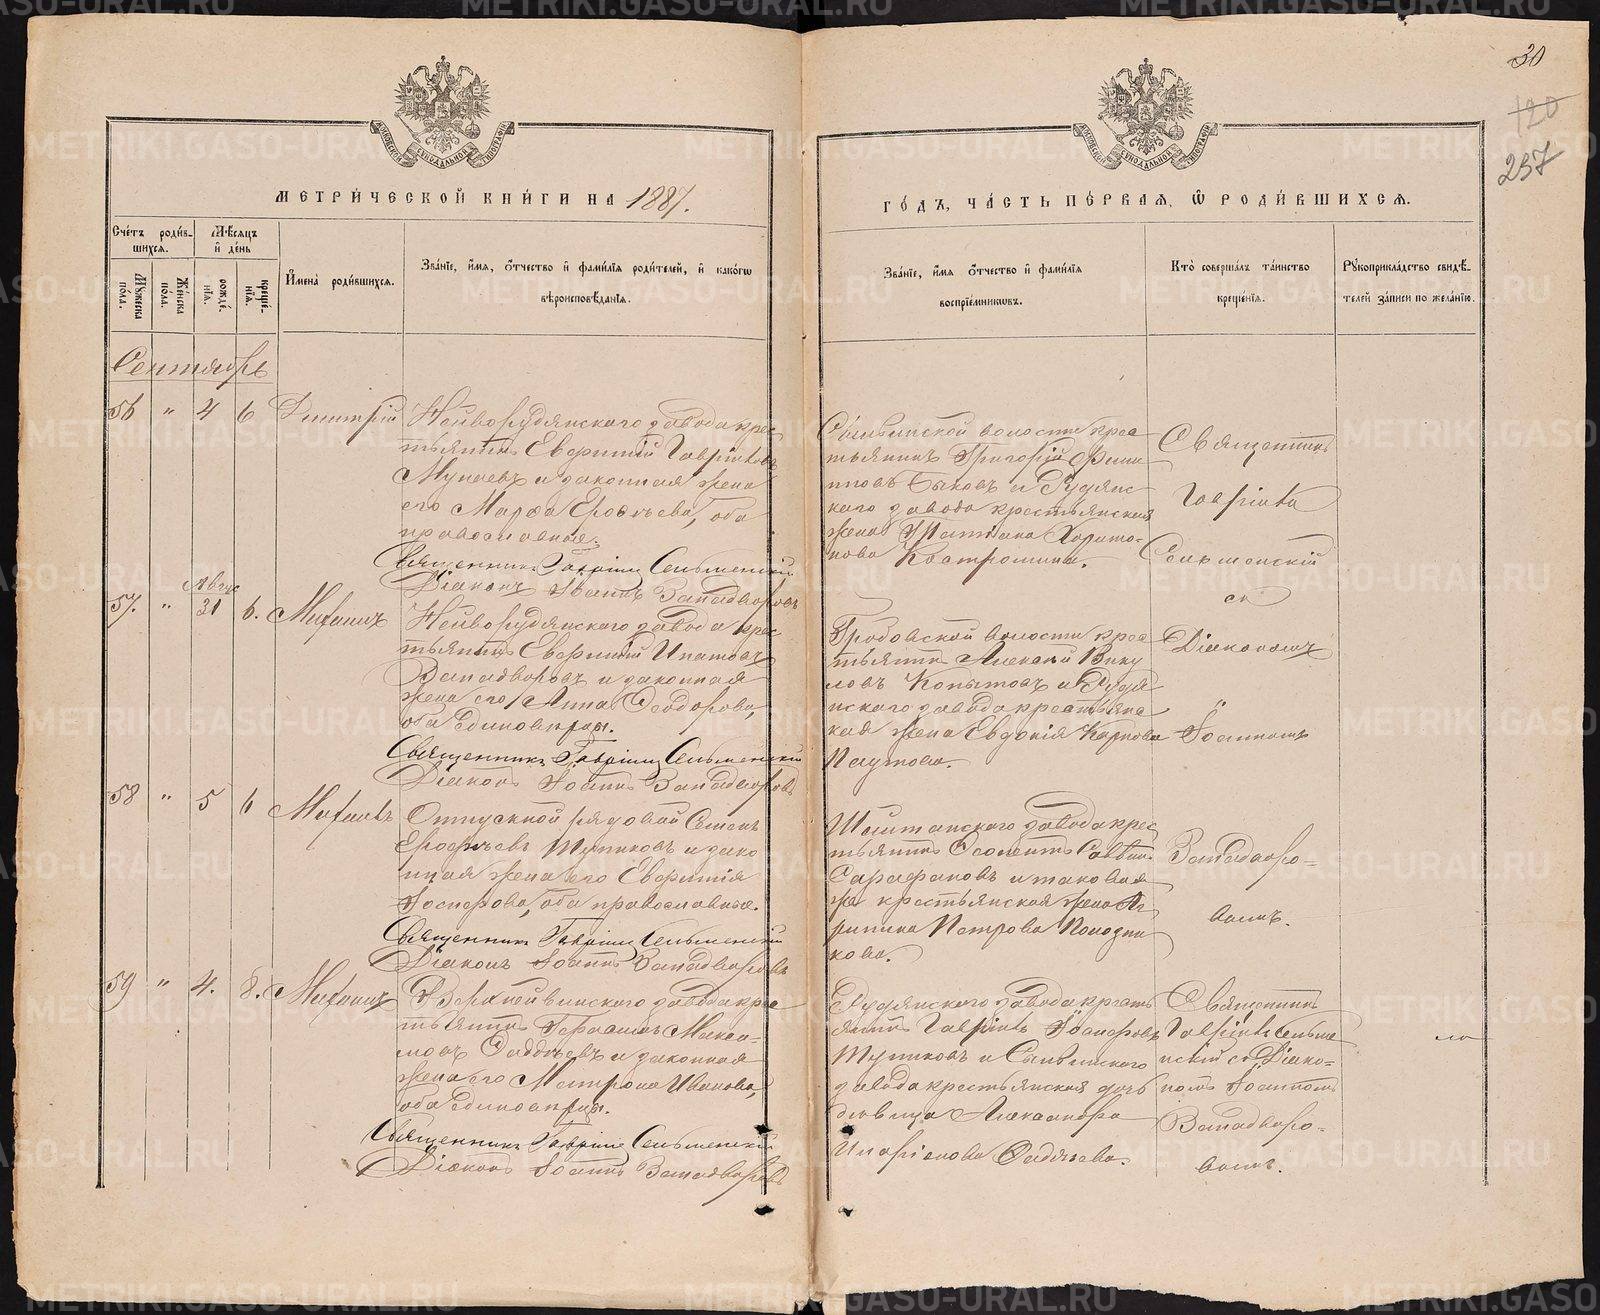 30
120
237
МЕТРИ́ЧЕСКОЙ КНИ́ГИ НА 1887.
ГО́ДЪ, ЧА́СТЬ ПЕ́РВАЯ, Ѿ РОДИ́ВШИХСЯ.
Сче́тъ роди́в-
шихся.
Мꙋжеска
по́ла.
Же́нска
по́ла.
Мѣ́сяцъ
и҆ де́нь
рожде́-
нїя.
креще́-
нїя.
И҆мена̀ роди́вшихся.
Зва́нїе, и҆́мя, ѻ҆́тчество и҆ фами́лїя роди́телей, и҆ како́гѡ
вѣроисповѣ́данїя.
Зва́нїе, и҆́мя ѻ҆́тчество и҆ фами́лїя
воспрїе́мникѡвъ.
Кто̀ соверша́лъ та́инство
креще́нїя.
Рꙋкоприкла́дство свидѣ́-
телей за́писи по жела́нїю.
Сентябрь
56 " 4 6 Димитрій
Нейворудянскаго завода крес
тьянинъ Евфимій Гавріиловъ
Мупаевъ и законная жена
его Марфа Ерофѣева, оба
православные.
Священникъ Гавріилъ Сельменскій
Діаконъ Іоаннъ Западворовъ
Сылвинской волости крес
тьянинъ Григорій Фили
пповъ Быковъ и Рудянс
каго завода крестьянская
жена Татіана Харито-
нова Костромина.
Священникъ
Гавріилъ
Сельменскій
съ
57. " Авгус 31 6. Михаилъ
Нейворудянскаго завода крес
тьянинъ Евфимій Ипатовъ
Западворовъ и законная
жена его Анна Ѳеодорова,
оба единовѣрцы.
Священникъ Гавріилъ Сельменскій
Діаконъ Іоаннъ Западворовъ
Гробовской волости крес
тьянинъ Алексѣй Вику
ловъ Копытовъ и Рудя
нскаго завода крестьянс
кая жена Евдокія Карпова
Паутова.
Діакономъ
Іоанномъ
58 " 5 6 Михаилъ
Отпускной рядовой Семенъ
Ерофѣевъ Тупиковъ и зако
нная жена его Евфимія
Іосифова, оба православные.
Священникъ Гавріилъ Сельменскій
Діаконъ Іоаннъ Западворовъ
Шайтанскаго завода крес
тьянинъ Савви
Сарафановъ и таковая
же крестьянская жена Аг
рипина Петрова Колодки
кова.
Западворо-
вымъ.
59 " 4. 8. Михаилъ
Верхнейвинскаго завода крес
тьянинъ Герасимъ Макси-
мовъ Ѳаддѣевъ и законная
жена его Матрона Иванова,
оба единовѣрцы.
Священникъ Гавріилъ Сельменскій
Діаконъ Іоаннъ Западворовъ
Рудянскаго завода кресть
янинъ Гавріилъ Іосифовъ
Тупиковъ и Сылвинскаго
завода крестьянская дочь
дѣвица Александра
Иларіонова Ѳаддѣева.
Священникъ
Гавріилъ Сельме
нскій съ Діако-
номъ Іоанномъ
Западворо-
вымъ.
METRIKI.GASO-URAL.RU